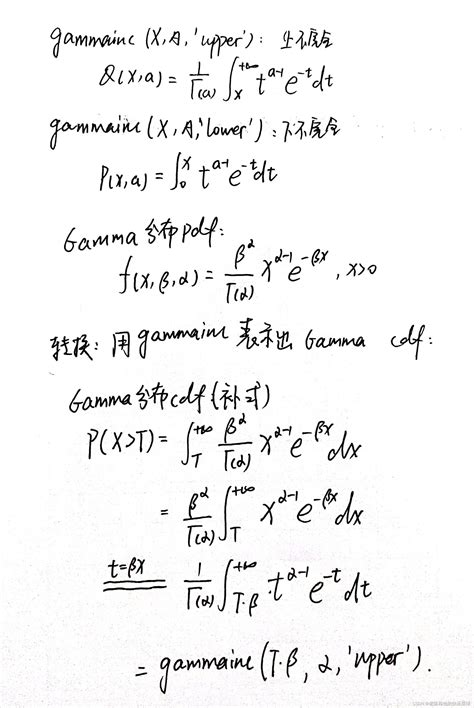 gammainc (X, A, 'upper'): 上不完全
Q(x,a) = 1/Γ(a) ∫_x^{+∞} t^{a-1} e^{-t} dt
gammainc (X, A, 'lower'): 下不完全
P(x,a) = ∫_0^x t^{a-1} e^{-t} dt
Gamma 分布 pdf:
f(x, β, α) = β^α/Γ(α) x^{α-1} e^{-βx}, x>0
转换: 用 gammainc 表示出 Gamma cdf:
Gamma 分布 cdf (补式)
P(X>T) = ∫_T^{+∞} β^α/Γ(α) x^{α-1} e^{-βx} dx
= β^α/Γ(α) ∫_T^{+∞} x^{α-1} e^{-βx} dx
t=βx 1/Γ(α) ∫_{T·β}^{+∞} t^{α-1} e^{-t} dt
= gammainc (T·β, α, 'upper').